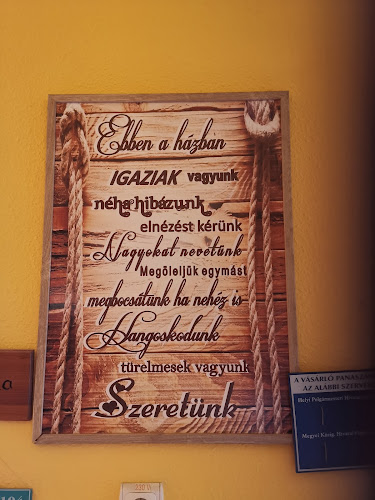 Ebben a házban
IGAZIAK vagyunk
néha hibázunk
elnézést kérünk
Nagyokat nevetünk
Megöleljük egymást
megbocsátunk ha nehéz is
Hangoskodunk
türelmesek vagyunk
Szeretünk
a
A VÁSÁRLÓ
AZ ALÁBBI
Helyi Polgármesteri
Megyei